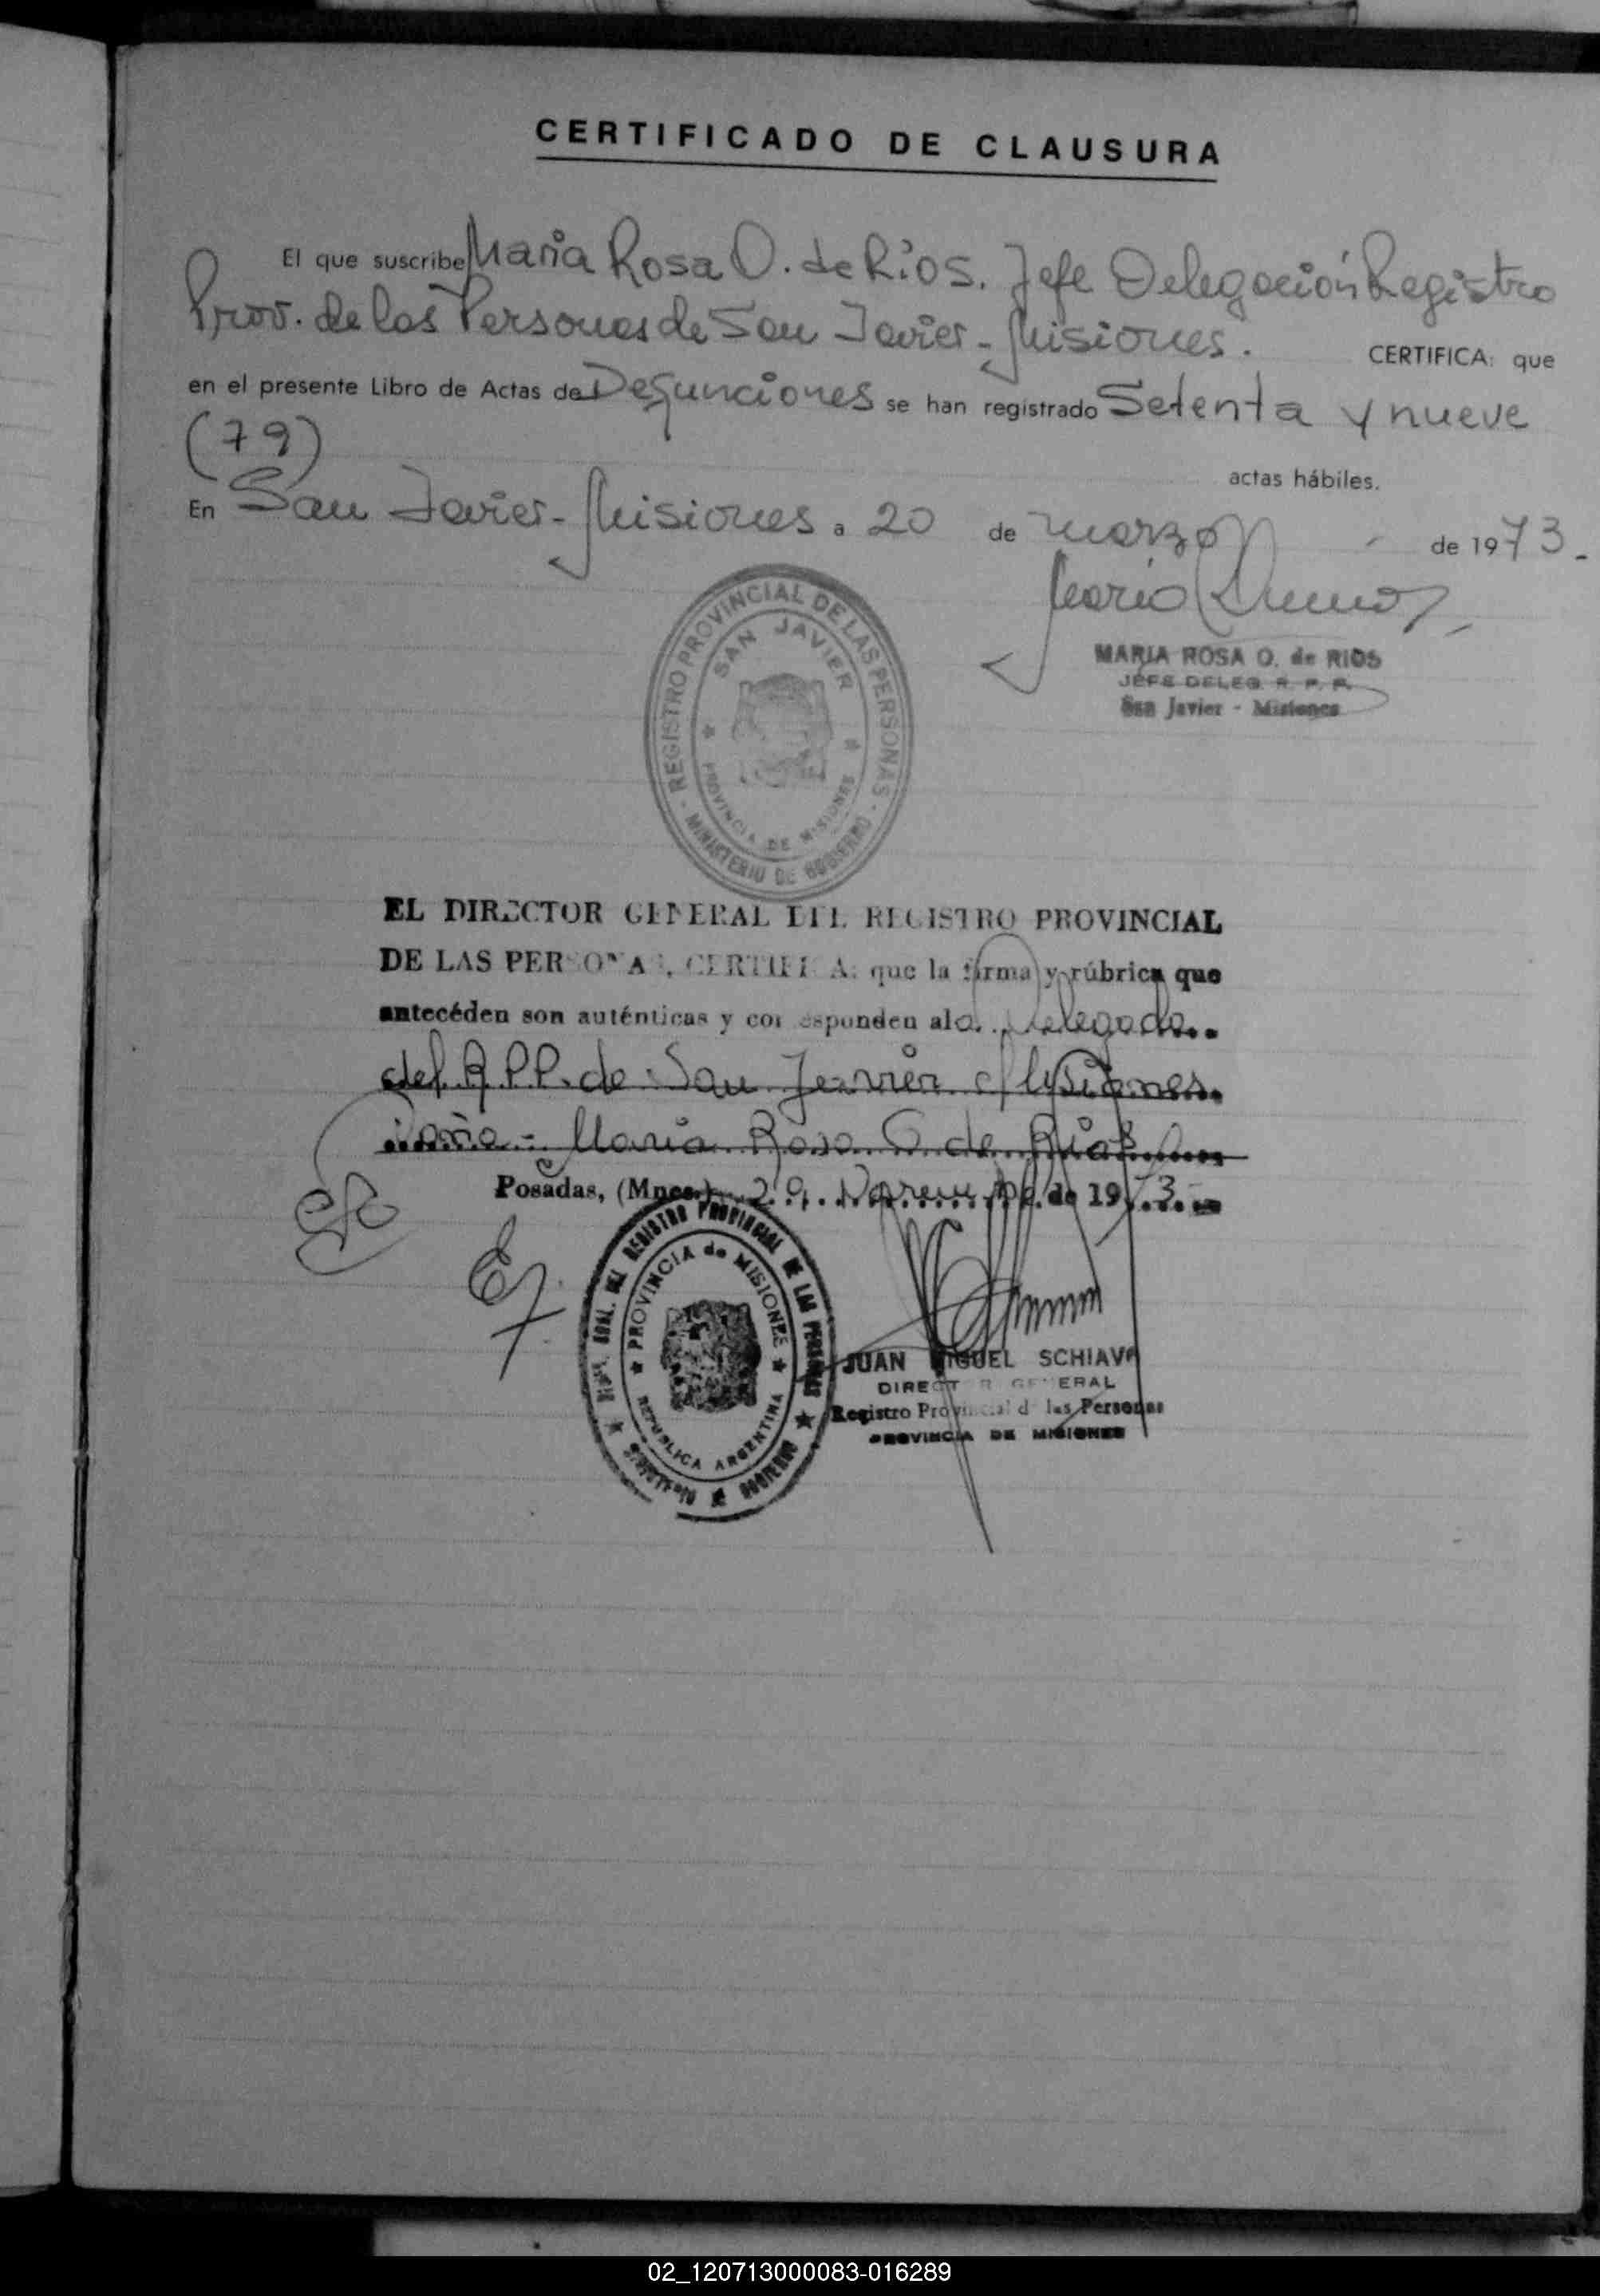 CERTIFICADO DE CLAUSURA
El que suscribe Maria Rosa O. de Ríos. Jefe Delegación Registro
Prov. de las Personas de San Javier - Misiones. CERTIFICA: que
en el presente Libro de Actas de Defunciones se han registrado Setenta y nueve
(79)
actas hábiles.
En San Javier - Misiones a 20 de marzo de 1973.-
MARIA ROSA O. de RIOS
JEFE DELEG. R. P. P.
San Javier - Misiones
REGISTRO PROVINCIAL DE LAS PERSONAS
SAN JAVIER
PROVINCIA DE MISIONES
MINISTERIO DE GOBIERNO
EL DIRECTOR GENERAL DEL REGISTRO PROVINCIAL
DE LAS PERSONAS, CERTIFICA: que la firma y rúbrica que
antecéden son auténticas y corresponden al a Delegada
del R.P.P. de San Javier Misiones
Doña - Maria Rosa O de Rios
Posadas, (Mnes.) 29 de 1973
GRAL. DEL REGISTRO PROVINCIAL DE LAS PERSONAS
PROVINCIA de MISIONES
REPUBLICA ARGENTINA
MINISTERIO DE GOBIERNO
JUAN MIGUEL SCHIAVO
DIRECTOR GENERAL
Registro Provincial de las Personas
PROVINCIA DE MISIONES
02_120713000083-016289